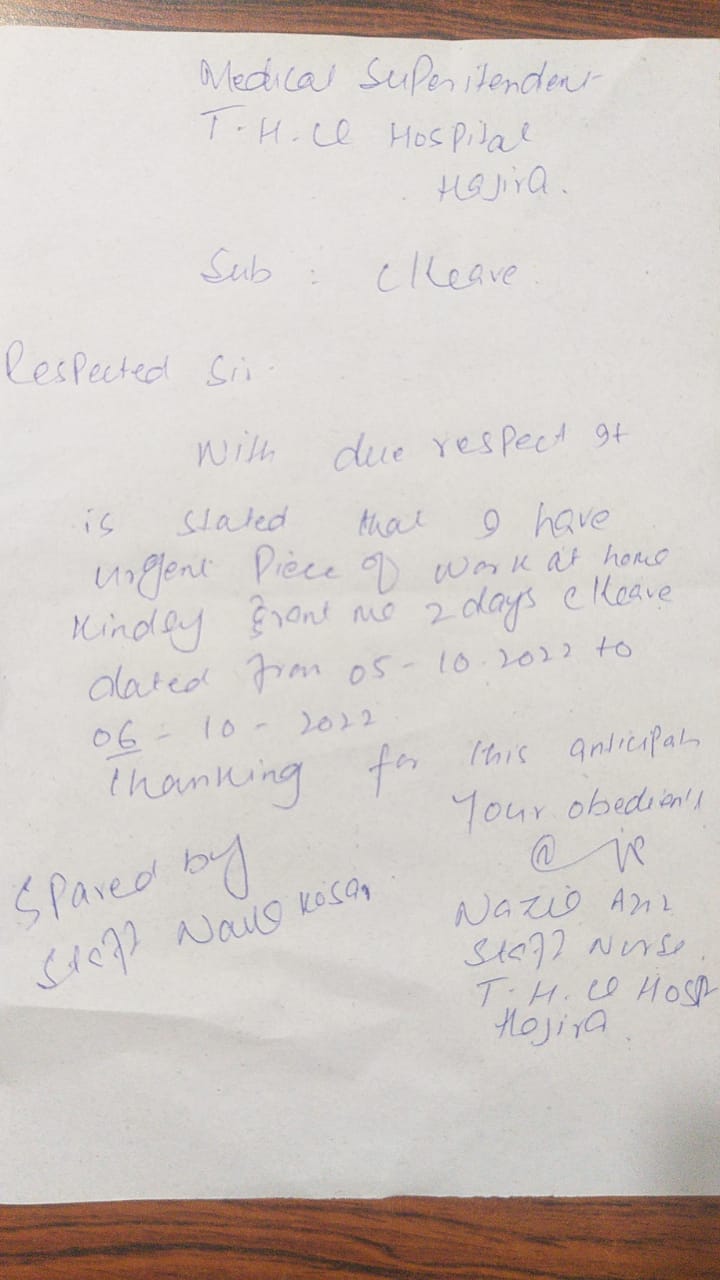 Medical Superitendent
T.H.Q Hospital
Hajira.
Sub : C/Leave
Respected Sir.
With due respect It
is stated that I have
urgent Piece of work at home
Kindly grant me 2 days C/Leave
dated from 05-10-2022 to
06-10-2022
Thanking for this anticipation
Your obedient's
Nazia Aziz
Staff Nurse.
T.H.Q Hosp
Hajira.
Spared by
Staff Kosar